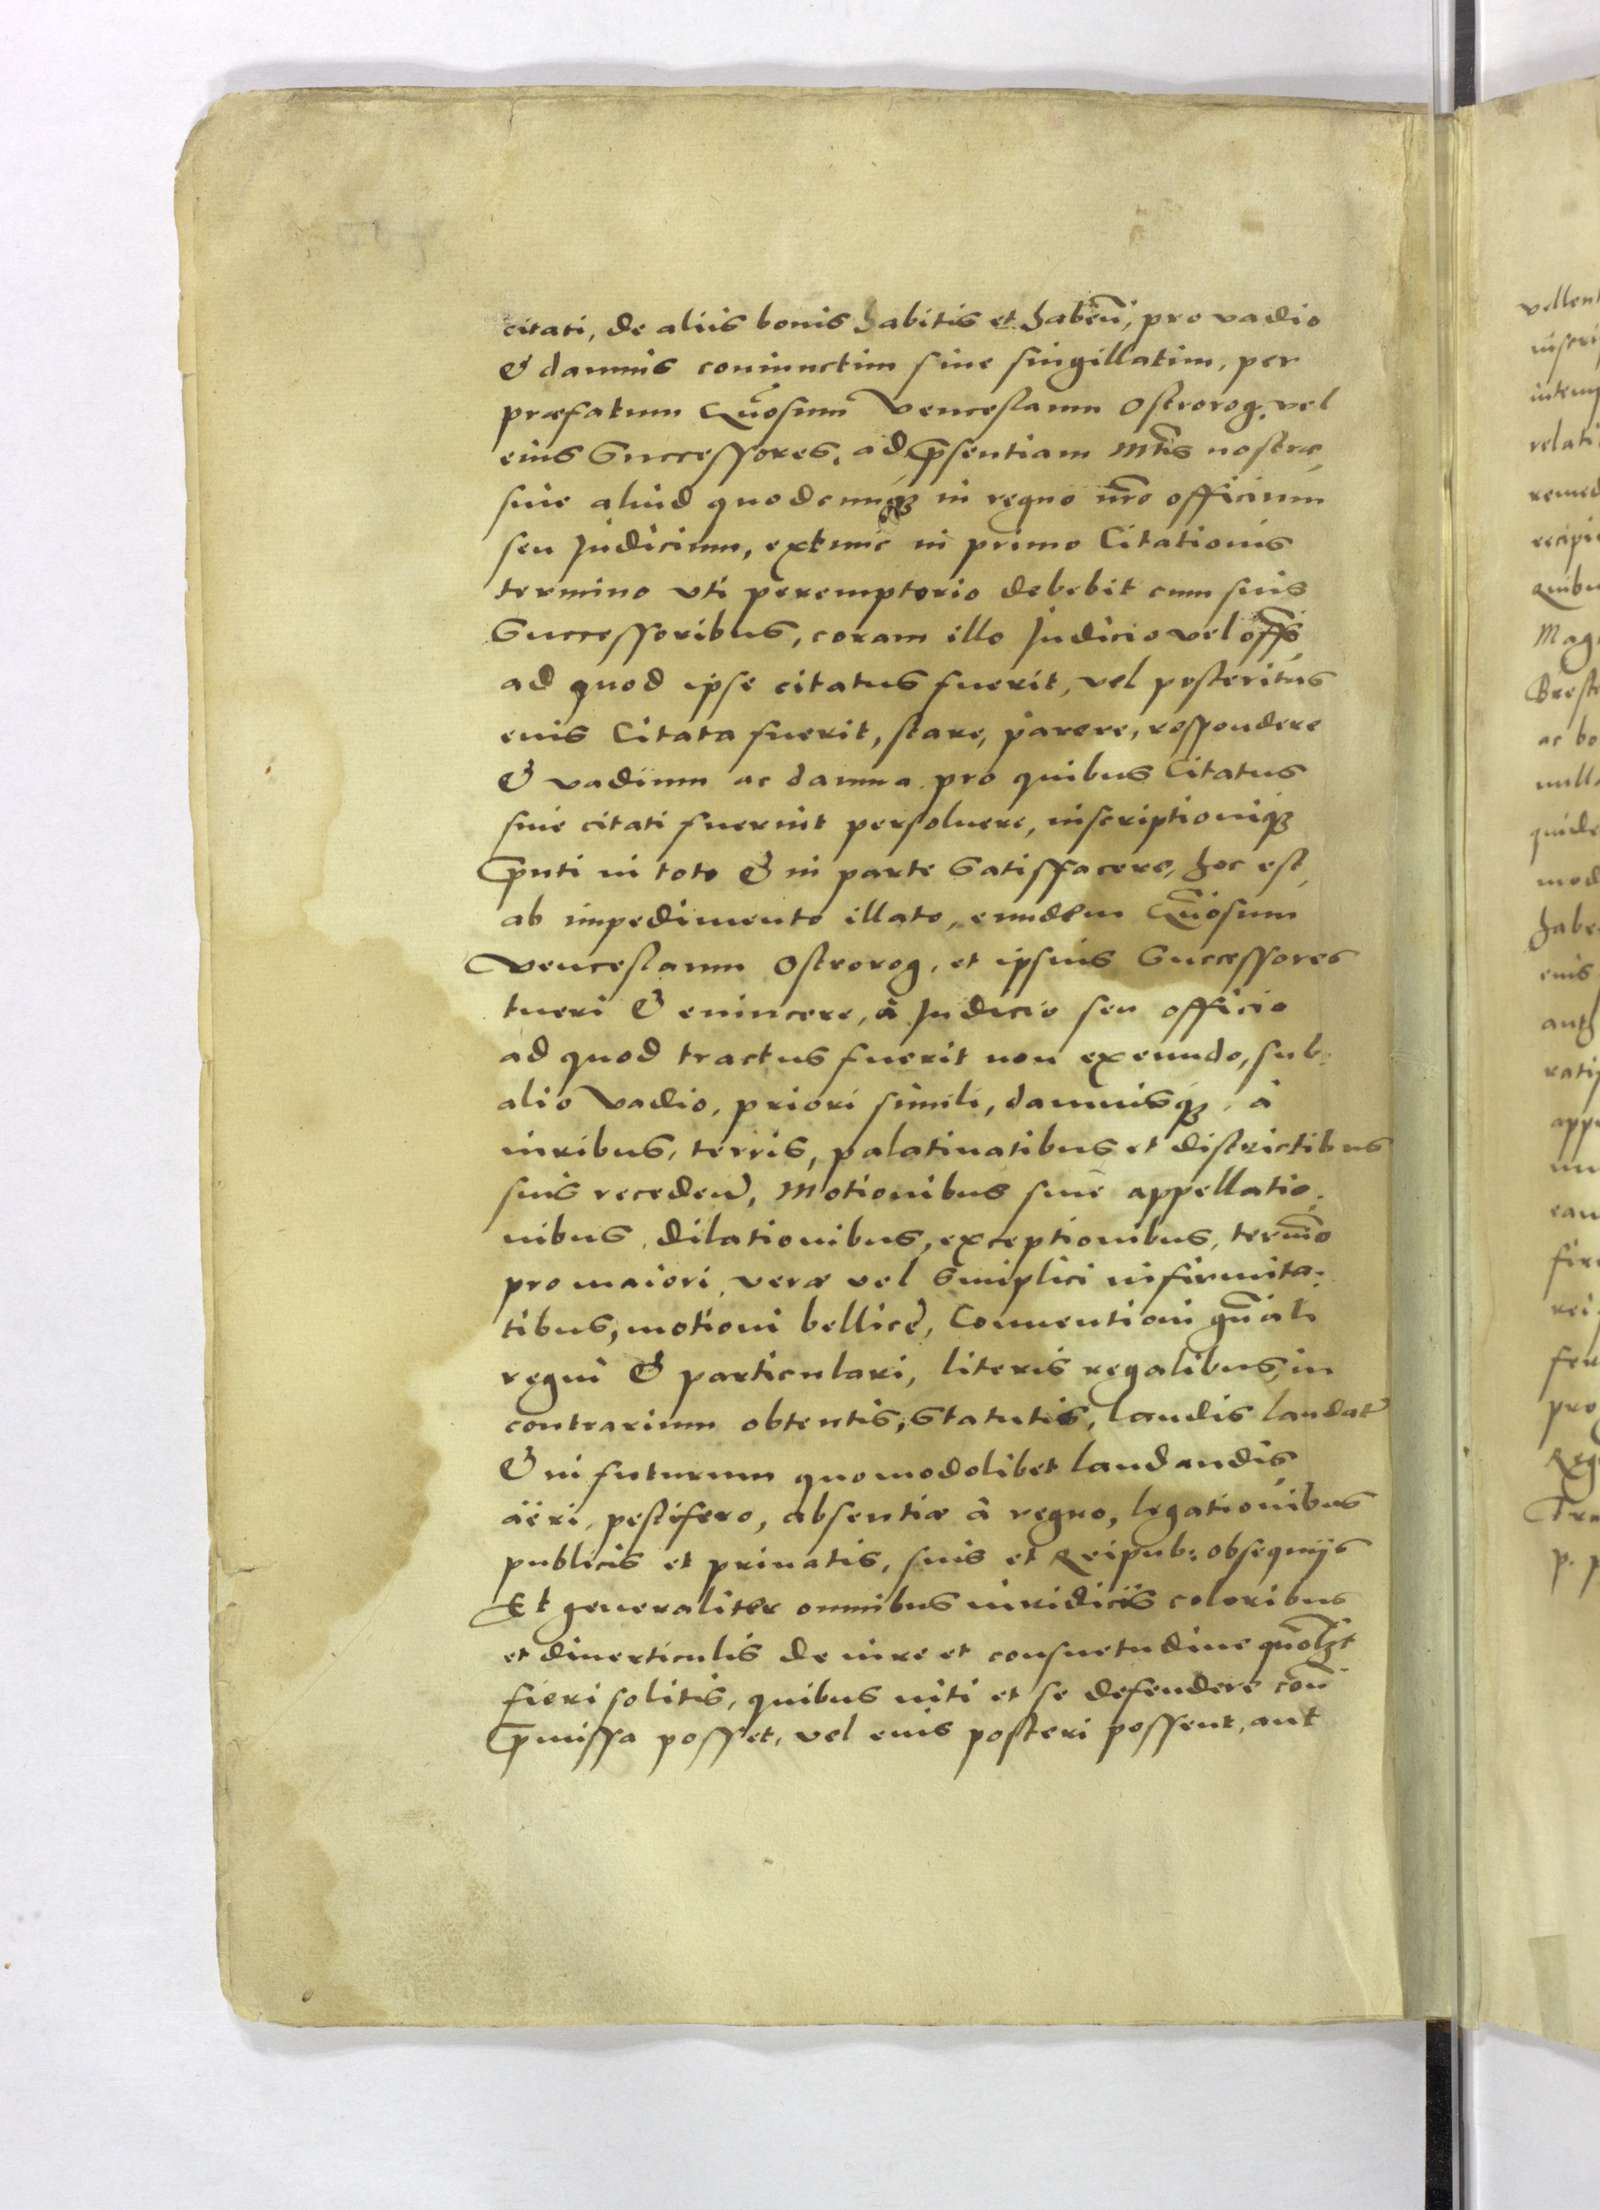 citati, de aliis bonis habitis et haben̄, pro vadio
& damnis coniunctim siue singillatim, per
præfatum Gn̄osum Venceslaum Ostrorog. vel
eius Successores, ad p̄sentiam Mt̄is nostræ,
siue aliud quodcunqꝫ in regno nr̄o officium
seu Judicium, ex tunc in primo Citationis
termino vti peremptorio debebit cum suis
Successoribus, coram illo Judicio vel off̄o,
ad quod ipse citatus fuerit, vel posteritas
eius Citata fuerit, stare, parere, respondere
& vadium ac damna pro quibus Citatus
siue citati fuerint persoluere, inscriptioniqꝫ
p̄nti in toto & in parte Satisfacere, hoc est,
ab impedimento illato, eundem Gn̄osum
Venceslaum Ostrorog, et ipsius Successores
tueri & euincere, à Judicio seu officio
ad quod tractus fuerit non exeundo, sub
alio Vadio, priori simili, damnisqꝫ, à
iuribus, terris, palatinatibus et districtibus
suis receden̄, Motionibus siue appellatio.
nibus, dilationibus, exceptionibus, termīo
pro maiori, veræ vel Simplici infirmita.
tibus, motioni bellicę, Conuentioni gn̄ali
regni & particulari, literis regalibus, in
contrarium obtentis, Statutis, laudis laudat̄
& in futurum quomodolibet laudandis,
aëri, pestifero, absentiæ à regno, legationibus
publicis et priuatis, suis et Reipub: obsequijs
Et generaliter omnibus iuridicis coloribus
et diuerticulis de iure et consuetudine quōlꝫt
fieri solitis, quibus uiti et se defendere con̄
p̄missa posset, vel eius posteri possent, aut
vellent
relati
Mag
ac bo
nulla
eius
rati
app
pro
Reg
p. p